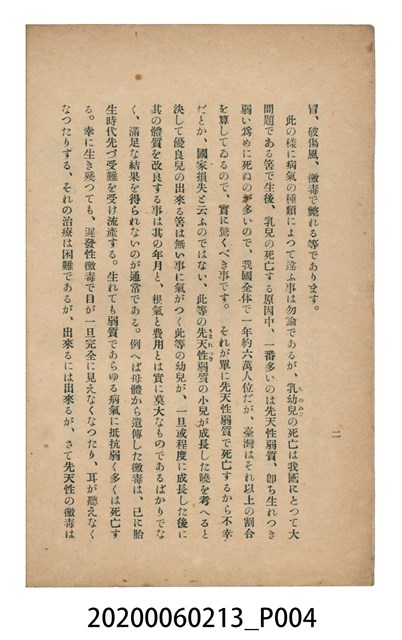 冒、破傷風、黴毒で斃れる等であります。
此の樣に病氣の種類によつて違ふ事は勿論であるが、乳幼兒の死亡は我國にとつて大
問題である筈で生後、乳兒の死亡する原因中、一番多いのは先天性弱質、卽ち生れつき
弱い爲めに死ぬのが多いので、我國全体で一年約六萬人位だが、臺灣はそれ以上の割合
を算してゐるので、實に驚くべき事です。それが單に先天性弱質で死亡するから不幸
だとか、國家損失と云ふのではない、此等の先天性弱質の小兒が成長した曉を考へると
決して優良兒の出來る筈は無い事に氣がつく此等の幼兒が、一旦或程度に成長した後に
其の體質を改良する事は其の年月と、根氣と費用とは實に莫大なものであるばかりでな
く、滿足な結果を得られないのが通常である。例へば母體から遺傳した黴毒は、已に胎
生時代先づ受難を受け流產する。生れても弱質であらゆる病氣に抵抗弱く多くは死亡す
る。幸に生き殘つても、遲發性黴毒で目が一旦完全に見えなくなつたり、耳が聽えなく
なつたりする、それの治療は困難であるが、出來るには出來るが、さて先天性の黴毒は
二
20200060213_P004